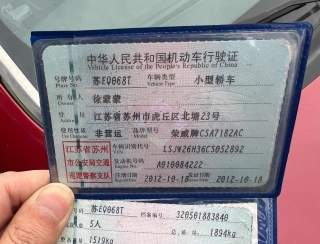 中华人民共和国机动车行驶证
Vehicle License of the People's Republic of China
号牌号码 苏EQ068T 车辆类型 小型轿车
Plate No. Vehicle Type
所有人 徐蒙蒙
Owner
住址 江苏省苏州市虎丘区北塘23号
Address
使用性质 非营运 品牌型号 荣威牌CSA7182AC
Use Character Model
江苏省苏州市公安局交通巡逻警察支队
车辆识别代号 LSJW26H36CS052892
VIN
发动机号码 A010084222
Engine No.
注册日期 2012-10-18 发证日期 2012-10-18
苏EQ068T 档案编号 320501883840
5人 1894kg
1519kg